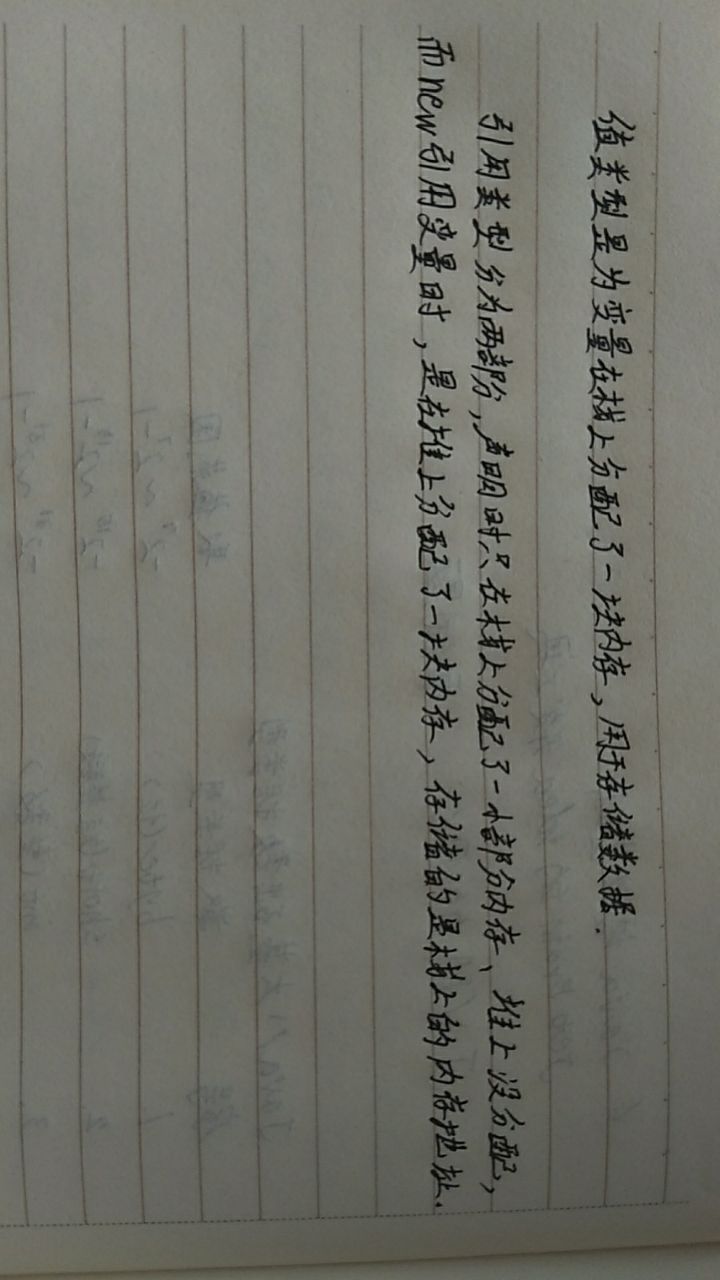 值类型是为变量在栈上分配了一块内存，用于存储数据.
引用类型分为两部分，声明时只在栈上分配了一小部分内存、堆上没分配，
而new引用变量时，是在堆上分配了一块内存，存储的是栈上的内存地址.